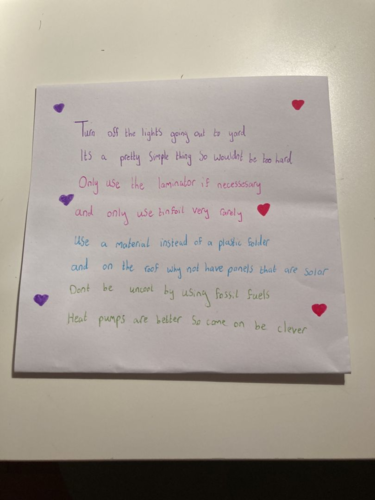 Turn off the lights going out to yard
Its a pretty simple thing so wouldnt be too hard
Only use the laminator if necessesary
and only use tinfoil very rarely
Use a material instead of a plastic folder
and on the roof why not have panels that are solar
Dont be uncool by using fossil fuels
Heat pumps are better so come on be clever